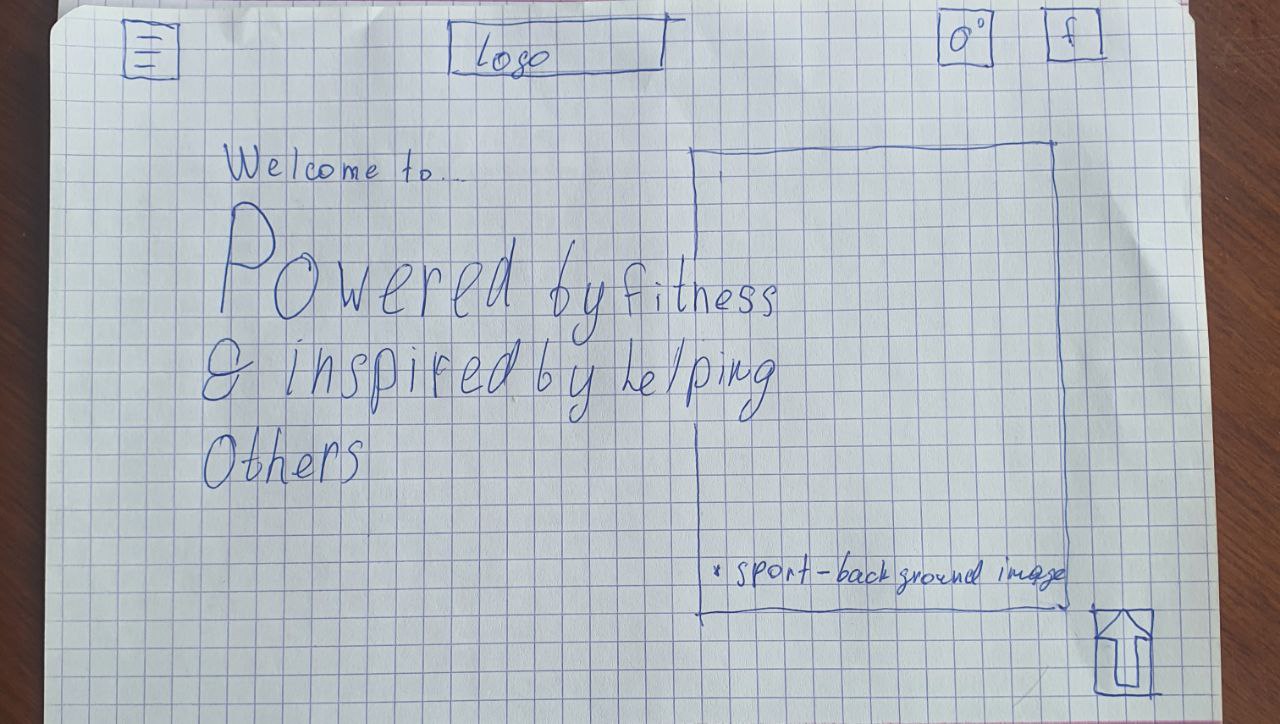 Logo
f
Welcome to...
Powered by fitness
& inspired by helping
Others
* sport-background image